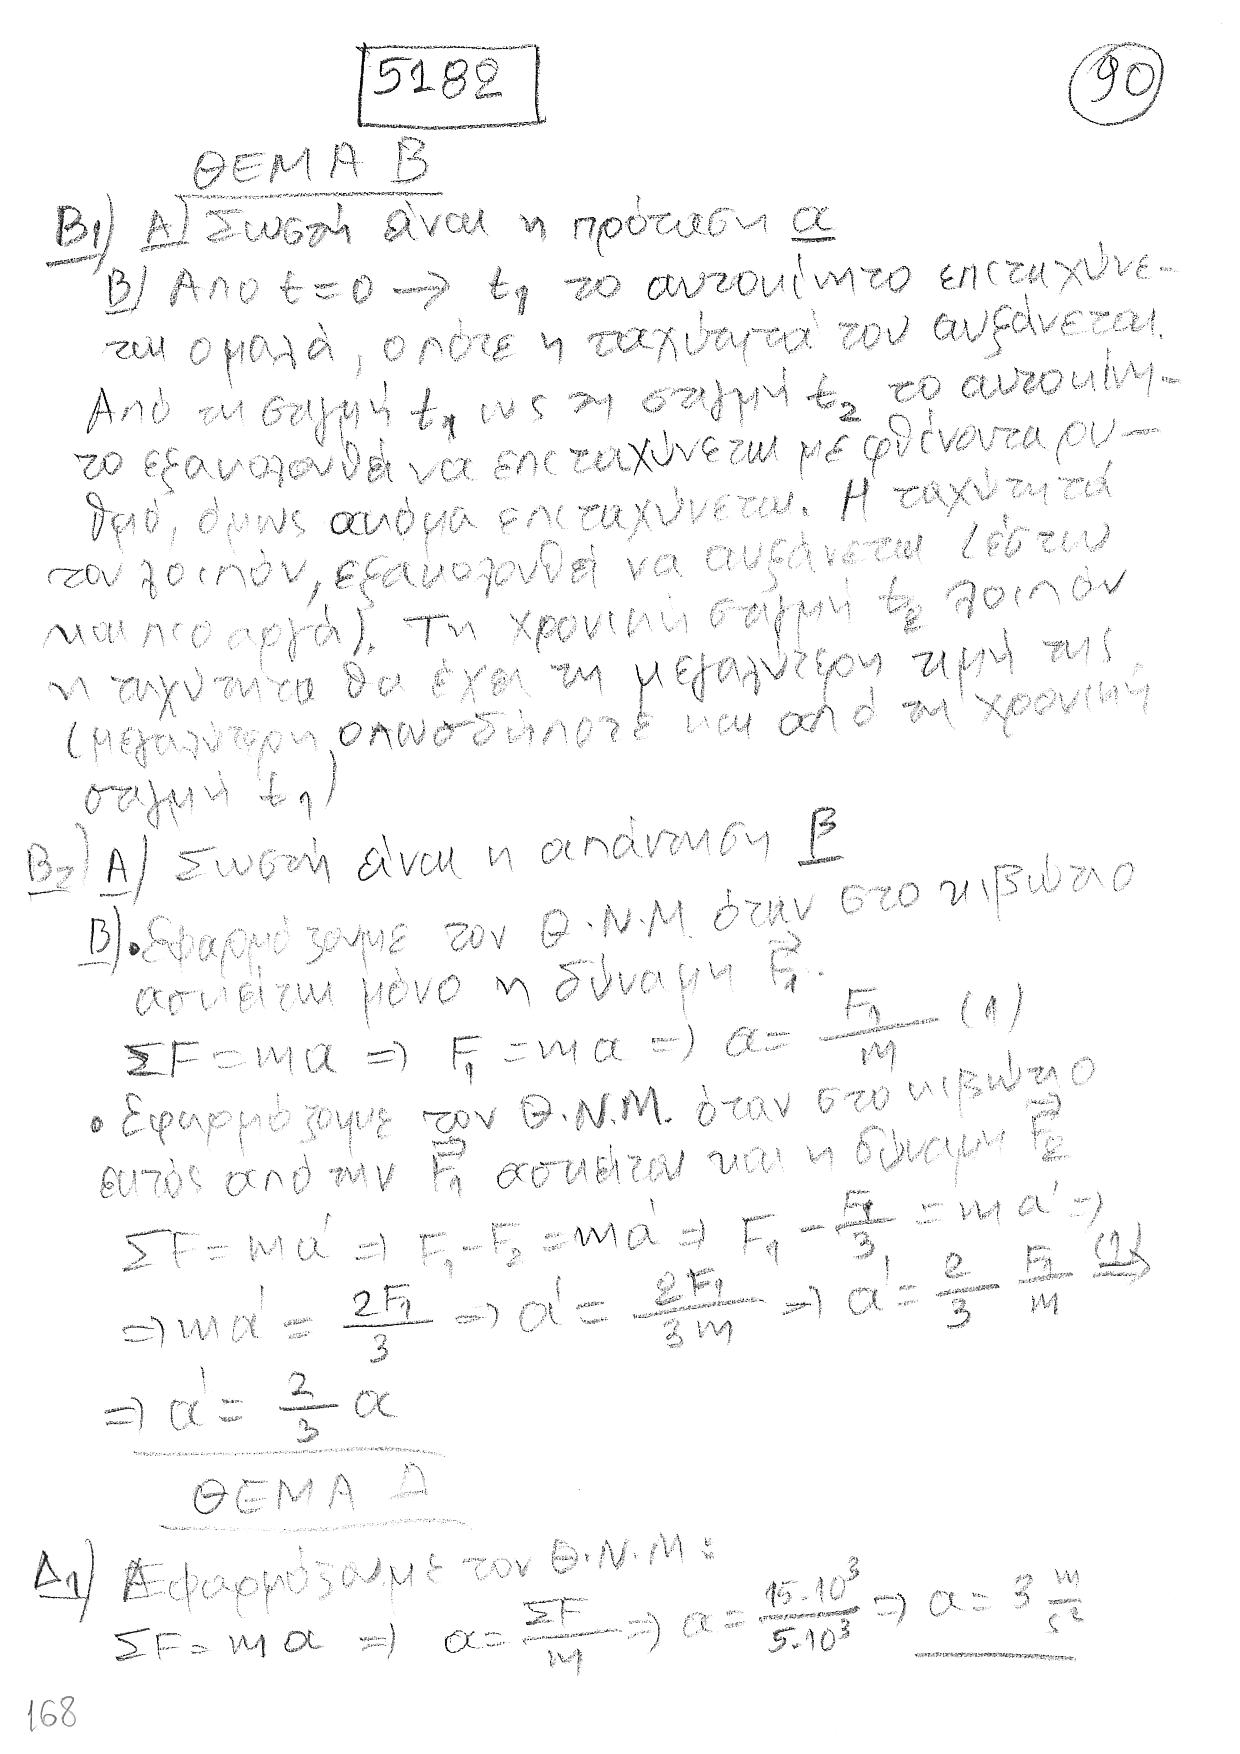 5182
90
ΘΕΜΑ Β
Β1) Α) Σωστή είναι η πρόταση α
Β) Από t=0 → t1 το αυτοκίνητο επιταχύνε-
ται ομαλά, οπότε η ταχύτητά του αυξάνεται.
Από τη στιγμή t1 ως τη στιγμή t2 το αυτοκίνη-
το εξακολουθεί να επιταχύνεται με φθίνοντα ρυ-
θμό, όμως ακόμα επιταχύνεται. Η ταχύτητά
του λοιπόν, εξακολουθεί να αυξάνεται (έστω
και πιο αργά). Τη χρονική στιγμή t2 λοιπόν
η ταχύτητα θα έχει τη μεγαλύτερη τιμή της
(μεγαλύτερη οπωσδήποτε και από τη χρονική
στιγμή t1)
Β2) Α) Σωστή είναι η απάντηση β
Β) • Εφαρμόζουμε τον Θ.Ν.Μ. όταν στο κιβώτιο
ασκείται μόνο η δύναμη F⃗1.
ΣF = ma ⇒ F1 = ma ⇒ a = F1/m (1)
• Εφαρμόζουμε τον Θ.Ν.Μ. όταν στο κιβώτιο
εκτός από την F⃗1 ασκείται και η δύναμη F⃗2
ΣF = ma' ⇒ F1 - F2 = ma' ⇒ F1 - F1/3 = ma' ⇒
⇒ ma' = 2F1/3 ⇒ a' = 2F1/3m ⇒ a' = 2/3 F1/m (1)⇒
⇒ a' = 2/3 a
ΘΕΜΑ Δ
Δ1) Εφαρμόζουμε τον Θ.Ν.Μ:
ΣF = ma ⇒ a = ΣF/m ⇒ a = 15·10³/5·10³ ⇒ a = 3 m/s²
168